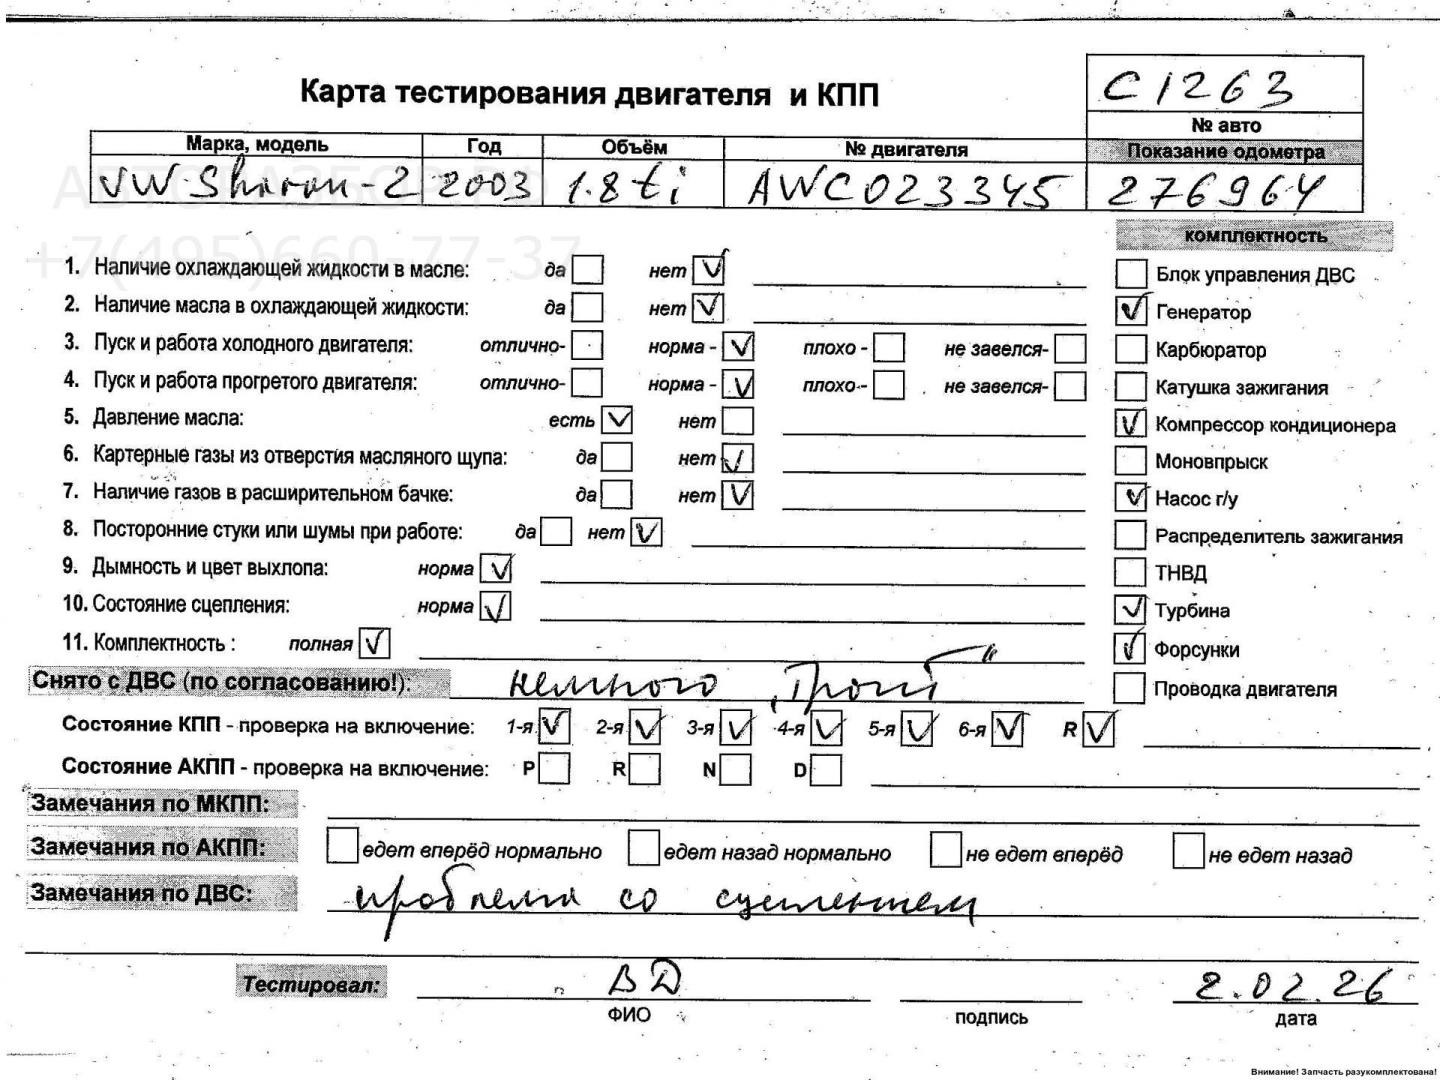 C1263
Карта тестирования двигателя и КПП
№ авто
Марка, модель Год Объём № двигателя Показание одометра
VW Sharan-2 2003 1.8 ti AWC023345 276964
+7(495)660-77-37
комплектность
1. Наличие охлаждающей жидкости в масле: да нет Блок управления ДВС
2. Наличие масла в охлаждающей жидкости: да нет Генератор
3. Пуск и работа холодного двигателя: отлично- норма - плохо - не завелся- Карбюратор
4. Пуск и работа прогретого двигателя: отлично- норма - плохо - не завелся- Катушка зажигания
5. Давление масла: есть нет Компрессор кондиционера
6. Картерные газы из отверстия масляного щупа: да нет Моновпрыск
7. Наличие газов в расширительном бачке: да нет Насос г/у
8. Посторонние стуки или шумы при работе: да нет Распределитель зажигания
9. Дымность и цвет выхлопа: норма ТНВД
10. Состояние сцепления: норма Турбина
11. Комплектность : полная Форсунки
Снято с ДВС (по согласованию!): немного "Троит" Проводка двигателя
Состояние КПП - проверка на включение: 1-я 2-я 3-я 4-я 5-я 6-я R
Состояние АКПП - проверка на включение: P R N D
Замечания по МКПП:
Замечания по АКПП: едет вперёд нормально едет назад нормально не едет вперёд не едет назад
Замечания по ДВС: проблема со сцеплением
Тестировал: ВД 2.02.26
ФИО подпись дата
Внимание! Запчасть разукомплектована!